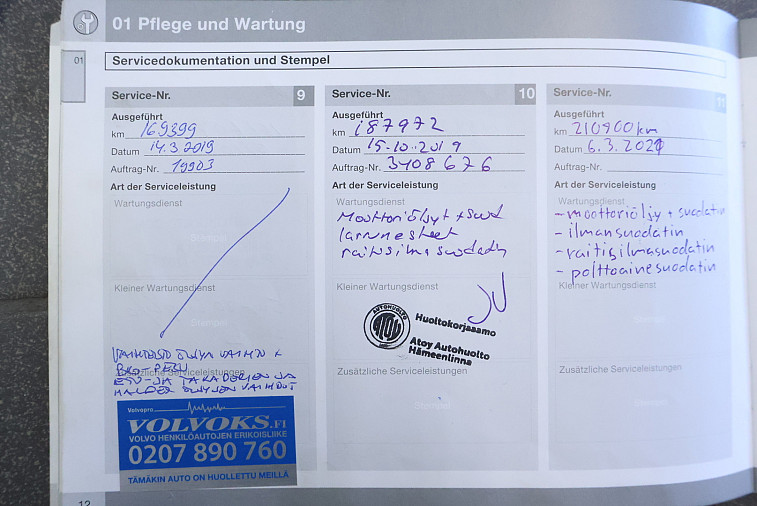 01 Pflege und Wartung
01
Servicedokumentation und Stempel
Service-Nr. 9
Ausgeführt
km 169399
Datum 14.3.2019
Auftrag-Nr. 19903
Art der Serviceleistung
Wartungsdienst
Kleiner Wartungsdienst
VAIHTEISTO ÖLJYN VAIHTO +
ETU- JA TAKA
ÖLJYJEN VAIHDOT
Zusätzliche Serviceleistungen
Volvopro
VOLVOKS.FI
VOLVO HENKILÖAUTOJEN ERIKOISLIIKE
0207 890 760
TÄMÄKIN AUTO ON HUOLLETTU MEILLÄ
Service-Nr. 10
Ausgeführt
km 187972
Datum 15.10.2019
Auftrag-Nr. 3408676
Art der Serviceleistung
Wartungsdienst
Moottoriöljyt + suod
Jarrunesteet
raitisilmasuodatin
Kleiner Wartungsdienst
AUTOHUOLTO
ATOY
Huoltokorjaamo
Atoy Autohuolto
Hämeenlinna
Zusätzliche Serviceleistungen
Service-Nr. 11
Ausgeführt
km 210900km
Datum 6.3.2021
Auftrag-Nr.
Art der Serviceleistung
Wartungsdienst
- moottoriöljy + suodatin
- ilmansuodatin
- raitisilmasuodatin
- polttoainesuodatin
Kleiner Wartungsdienst
Zusätzliche Serviceleistungen
12